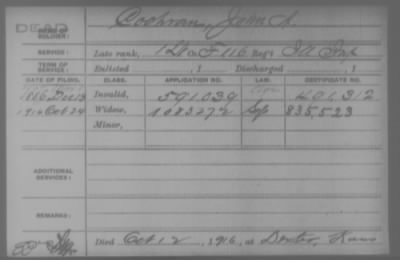 DEAD
NAME OF SOLDIER: Cochran, John A.
SERVICE: Late rank, 1 Lt Co. F 116 Reg't Ill Inf
TERM OF SERVICE: Enlisted , 1 Discharged , 1
DATE OF FILING. CLASS. APPLICATION NO. LAW. CERTIFICATE NO.
1886 Dec 13 Invalid, 591,039 401,312
1916 Oct 24 Widow, 1083272 Sep 835,523
Minor,
ADDITIONAL SERVICES:
REMARKS:
Died Oct 12, 1916, at Dexter, Kans